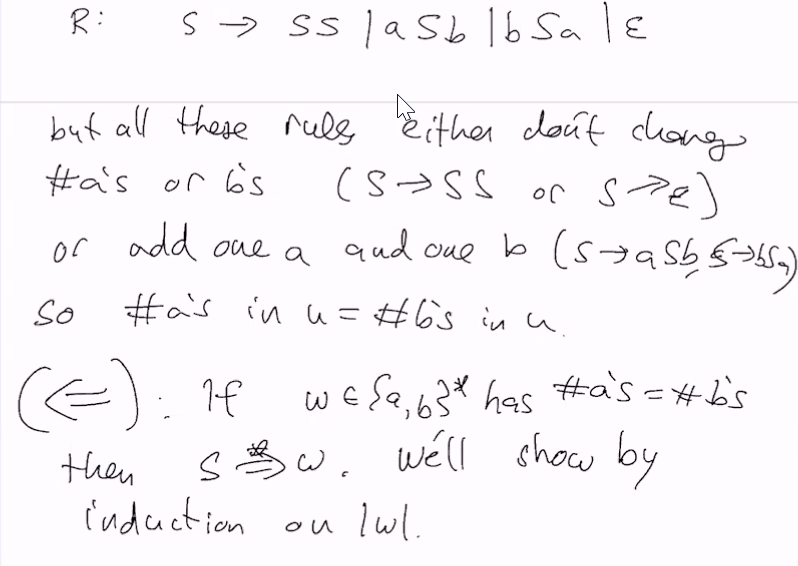 R: S → SS | aSb | bSa | ε
but all these rules either don't change
#a's or b's (S → SS or S → ε)
or add one a and one b (S → aSb, S → bSa)
So #a's in u = #b's in u.
(⇐): If w ∈ {a,b}* has #a's = #b's
then S ⇒* w. We'll show by
induction on |w|.